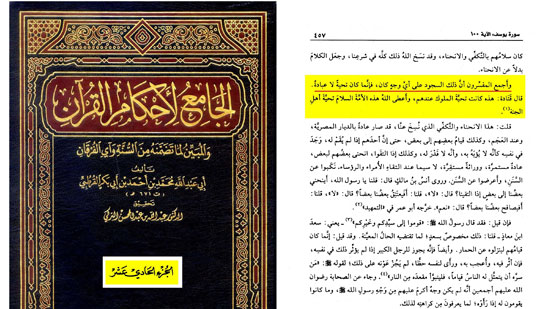 الجامع لأحكام القرآن
والمبين لما تضمنه من السنة وآي الفرقان
تأليف
أبي عبد الله محمد بن أحمد بن أبي بكر القرطبي
(ت ٦٧١ هـ)
تحقيق
الدكتور عبد الله بن عبد المحسن التركي
الجزء الحادي عشر
سورة يوسف: الآية ١٠٠
٤٥٧
كان سلامهم بالتكفي والانحناء، وقد نسخ الله ذلك كله في شرعنا، وجعل الكلام
بدلاً عن الانحناء.
وأجمع المفسرون أن ذلك السجود على أي وجه كان، فإنما كان تحية لا عبادة.
قال قتادة: هذه كانت تحية الملوك عندهم، وأعطى الله هذه الأمة السلام تحية أهل
الجنة(١).
قلت: هذا الانحناء والتكفي الذي نسخ عنا، قد صار عادة بالديار المصرية،
وعند العجم، وكذلك قيام بعضهم إلى بعض، حتى إن أحدهم إذا لم يقم له، وجد
في نفسه كأنه لا يؤبه به، وأنه لا قدر له، وكذلك إذا التقوا، انحنى بعضهم لبعض،
عادة مستمرة، ووراثة مستقرة، لا سيما عند التقاء الأمراء والرؤساء. نكبوا عن
السنن، وأعرضوا عن السنن. وروى أنس بن مالك قال: قلنا: يا رسول الله، أينحني
بعضنا إلى بعض إذا التقينا؟ قال: «لا»، قلنا: أفيعتنق بعضنا بعضاً؟ قال: «لا»، قلنا:
أفيصافح بعضنا بعضاً؟ قال: «نعم». خرجه أبو عمر في «التمهيد»(٢).
فإن قيل: فقد قال رسول الله ﷺ: «قوموا إلى سيدكم وخيركم»(٣) ـ يعني: سعد
ابن معاذ ـ قلنا: ذلك مخصوص بسعد؛ لما تقتضيه الحال المعينة. وقد قيل: إنما كان
قيامهم لينزلوه عن الحمار. وأيضاً فإنه يجوز للرجل الكبير إذا لم يؤثر ذلك في نفسه،
فإن أثر فيه، وأعجب به، ورأى لنفسه حظاً، لم يجز عونه على ذلك؛ لقوله ﷺ: «من
سره أن يتمثل له الناس قياماً، فليتبوأ مقعده من النار»(٤). وجاء عن الصحابة رضوان
الله عليهم أجمعين أنه لم يكن وجه أكرم عليهم من وجه رسول الله ﷺ، وما كانوا
يقومون له إذا رأوه؛ لما يعرفون من كراهته لذلك.